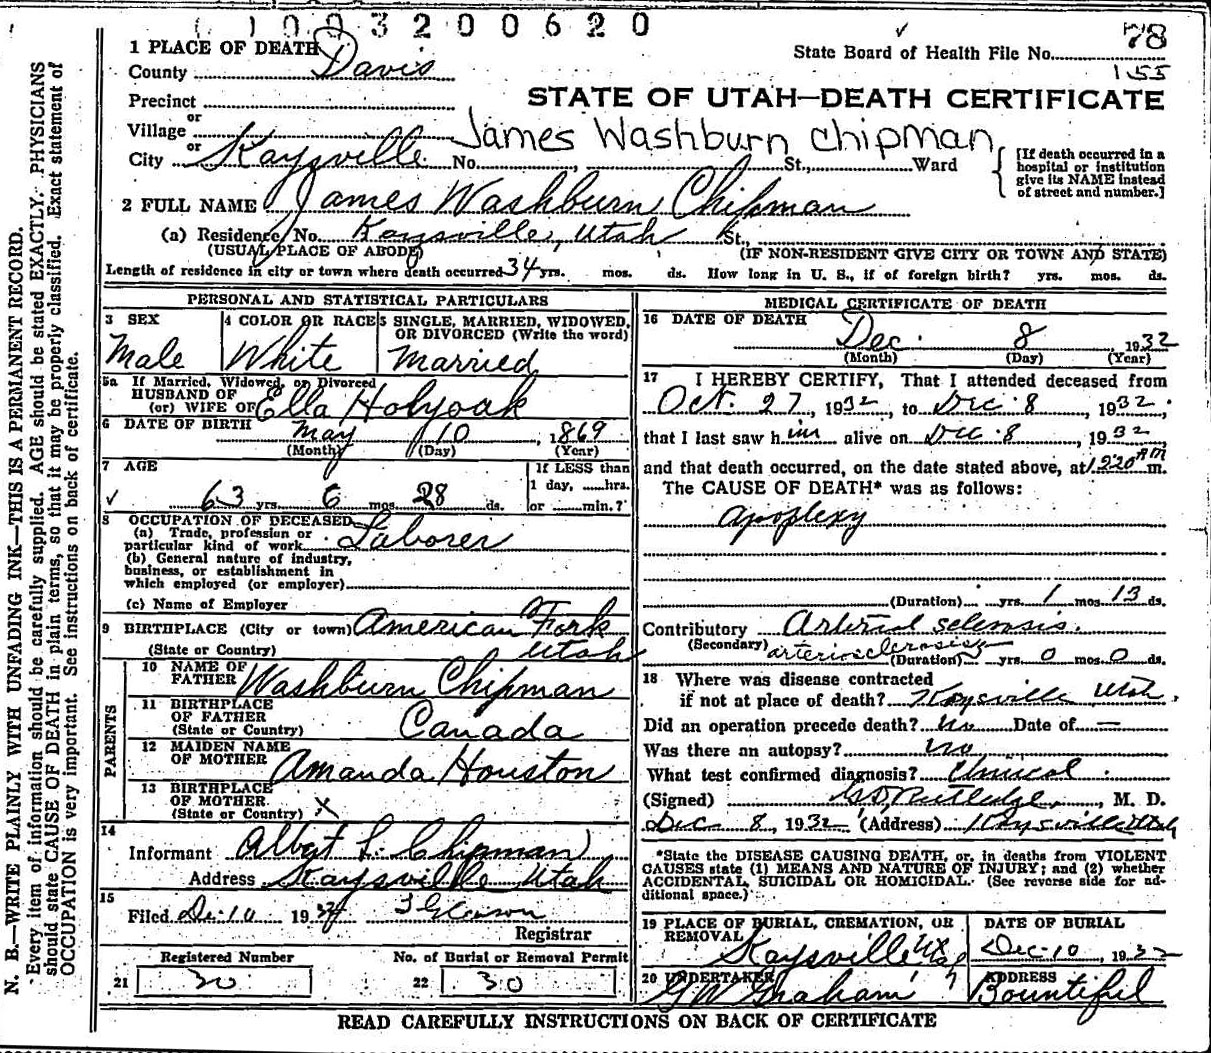 1 0 0 3 2 0 0 6 2 0
78
1 PLACE OF DEATH
State Board of Health File No.
155
County Davis
STATE OF UTAH—DEATH CERTIFICATE
Precinct
or
Village
James Washburn Chipman
or
City Kaysville No. , St., Ward
[If death occurred in a hospital or institution give its NAME instead of street and number.]
2 FULL NAME James Washburn Chipman
(a) Residence, No. Kaysville, Utah St.,
(USUAL PLACE OF ABODE) (IF NON-RESIDENT GIVE CITY OR TOWN AND STATE)
Length of residence in city or town where death occurred 34 yrs. mos. ds. How long in U. S., if of foreign birth? yrs. mos. ds.
PERSONAL AND STATISTICAL PARTICULARS
3 SEX
Male
4 COLOR OR RACE
White
5 SINGLE, MARRIED, WIDOWED, OR DIVORCED (Write the word)
Married
5a If Married, Widowed, or Divorced
HUSBAND OF
(or) WIFE OF Ella Holyoak
6 DATE OF BIRTH May 10, 1869
(Month) (Day) (Year)
7 AGE
63 yrs. 6 mos. 28 ds.
If LESS than
1 day, ......hrs.
or ......min.?
8 OCCUPATION OF DECEASED
(a) Trade, profession or
particular kind of work Laborer
(b) General nature of industry,
business, or establishment in
which employed (or employer)
(c) Name of Employer
9 BIRTHPLACE (City or town) American Fork
(State or Country) Utah
PARENTS
10 NAME OF FATHER Washburn Chipman
11 BIRTHPLACE OF FATHER (State or Country) Canada
12 MAIDEN NAME OF MOTHER Amanda Houston
13 BIRTHPLACE OF MOTHER (State or Country) X
14
Informant Albert L. Chipman
Address Kaysville Utah
15
Filed Dec. 10 1932
Registrar
Registered Number
21 30
No. of Burial or Removal Permit
22 30
MEDICAL CERTIFICATE OF DEATH
16 DATE OF DEATH
Dec. 8, 1932
(Month) (Day) (Year)
17 I HEREBY CERTIFY, That I attended deceased from
Oct. 27, 1932, to Dec. 8, 1932,
that I last saw him alive on Dec. 8, 1932,
and that death occurred, on the date stated above, at 1220 AM m.
The CAUSE OF DEATH* was as follows:
Apoplexy
(Duration) yrs. 1 mos. 13 ds.
Contributory Arterial sclerosis.
(Secondary) arteriosclerosis
(Duration) yrs. 0 mos. 0 ds.
18 Where was disease contracted
if not at place of death? Kaysville Utah.
Did an operation precede death? No Date of —
Was there an autopsy? no
What test confirmed diagnosis? Clinical
(Signed) G D Rutledge, M. D.
Dec 8, 1932 (Address) Kaysville Utah
*State the DISEASE CAUSING DEATH, or, in deaths from VIOLENT
CAUSES state (1) MEANS AND NATURE OF INJURY; and (2) whether
ACCIDENTAL, SUICIDAL OR HOMICIDAL. (See reverse side for ad-
ditional space.)
19 PLACE OF BURIAL, CREMATION, OR REMOVAL
Kaysville
DATE OF BURIAL
Dec. 10, 1932
20 UNDERTAKER
G W Graham
ADDRESS
Bountiful
READ CAREFULLY INSTRUCTIONS ON BACK OF CERTIFICATE
N. B.—WRITE PLAINLY WITH UNFADING INK—THIS IS A PERMANENT RECORD.
Every item of information should be carefully supplied. AGE should be stated EXACTLY. PHYSICIANS
should state CAUSE OF DEATH in plain terms, so that it may be properly classified. Exact statement of
OCCUPATION is very important. See instructions on back of certificate.